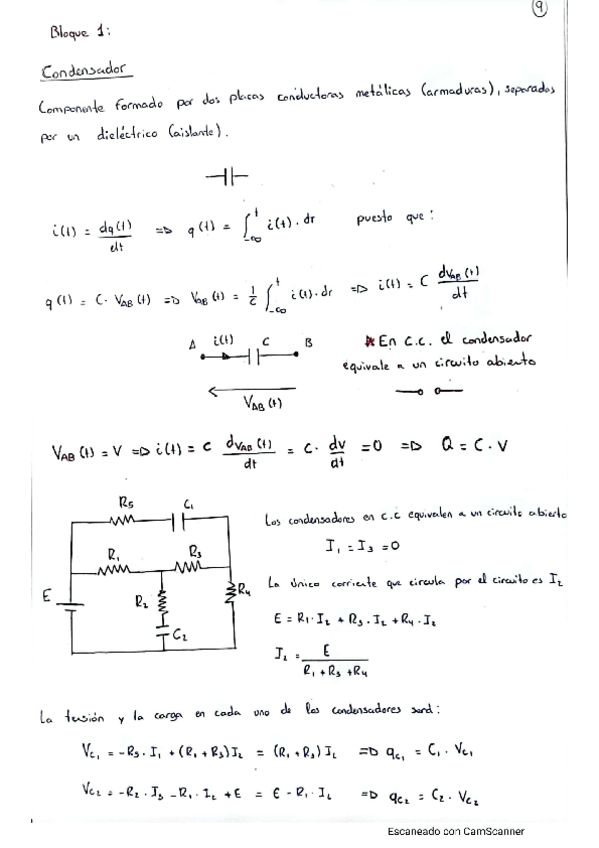 9
Bloque 1:
Condensador
Componente formado por dos placas conductoras metálicas (armaduras), separados
por un dieléctrico (aislante).
i(t) = dq(t)/dt => q(t) = ∫_{-∞}^{t} i(t)·dτ puesto que:
q(t) = C·V_AB(t) => V_AB(t) = 1/C ∫_{-∞}^{t} i(t)·dτ => i(t) = C dV_AB(t)/dt
A i(t) C B
V_AB(t)
* En c.c. el condensador
equivale a un circuito abierto
V_AB(t) = V => i(t) = C dV_AB(t)/dt = C· dv/dt = 0 => Q = C·V
R5 C1
R1 R3
E R2 R4
C2
Los condensadores en c.c equivalen a un circuito abierto
I1 = I3 = 0
La única corriente que circula por el circuito es I2
E = R1·I2 + R3·I2 + R4·I2
I2 = E/(R1 + R3 + R4)
La tensión y la carga en cada uno de los condensadores será:
Vc1 = -R5·I1 + (R1 + R3)I2 = (R1 + R3)I2 => qc1 = C1·Vc1
Vc2 = -R2·I3 - R1·I2 + E = E - R1·I2 => qc2 = C2·Vc2
Escaneado con CamScanner